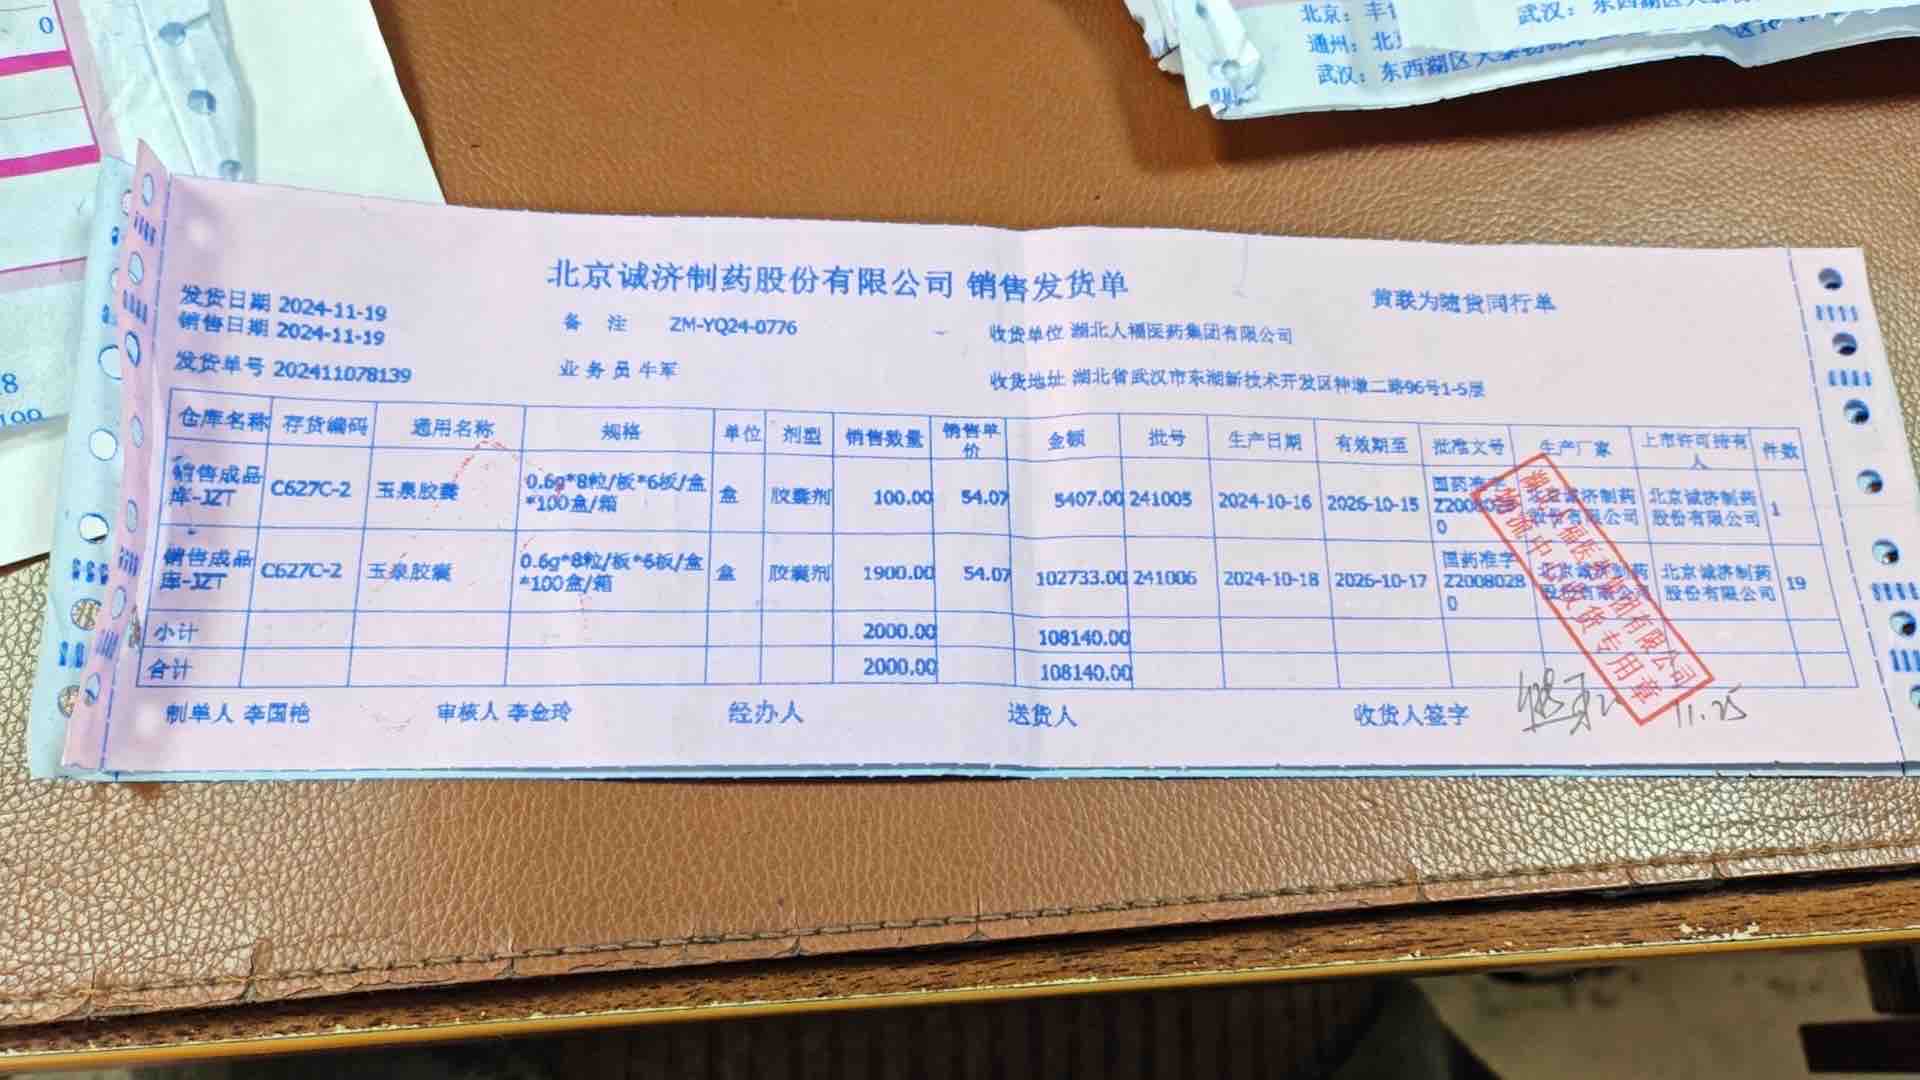 0
北京：丰
武汉：东西湖区大
通州：北
武汉：东西湖区大
8
199
北京诚济制药股份有限公司 销售发货单
黄联为随货同行单
发货日期 2024-11-19
销售日期 2024-11-19
备 注 ZM-YQ24-0776
收货单位 湖北人福医药集团有限公司
发货单号 202411078139
业务员 牛军
收货地址 湖北省武汉市东湖新技术开发区神墩二路96号1-5层
仓库名称 存货编码 通用名称 规格 单位 剂型 销售数量 销售单价 金额 批号 生产日期 有效期至 批准文号 生产厂家 上市许可持有人 件数
销售成品库-JZT C627C-2 玉泉胶囊 0.6g*8粒/板*6板/盒*100盒/箱 盒 胶囊剂 100.00 54.07 5407.00 241005 2024-10-16 2026-10-15 国药准字Z20080280 北京诚济制药股份有限公司 北京诚济制药股份有限公司 1
销售成品库-JZT C627C-2 玉泉胶囊 0.6g*8粒/板*6板/盒*100盒/箱 盒 胶囊剂 1900.00 54.07 102733.00 241006 2024-10-18 2026-10-17 国药准字Z20080280 北京诚济制药股份有限公司 北京诚济制药股份有限公司 19
小计 2000.00 108140.00
合计 2000.00 108140.00
湖北人福医药集团有限公司
物流中心收货专用章
制单人 李国艳 审核人 李金玲 经办人 送货人 收货人签字 11.25